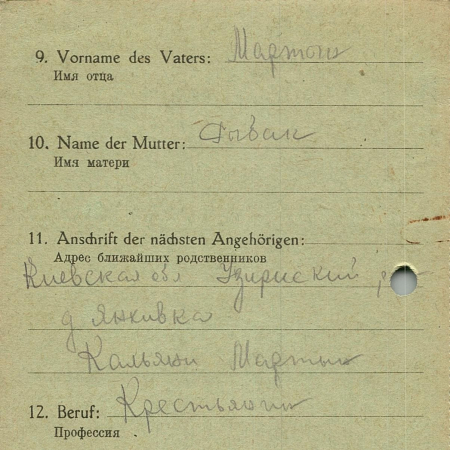 9. Vorname des Vaters: Мартын
Имя отца
10. Name der Mutter:
Имя матери
11. Anschrift der nächsten Angehörigen:
Адрес ближайших родственников
Киевская обл
д Янкивка
Мартын
12. Beruf: Крестьянин
Профессия